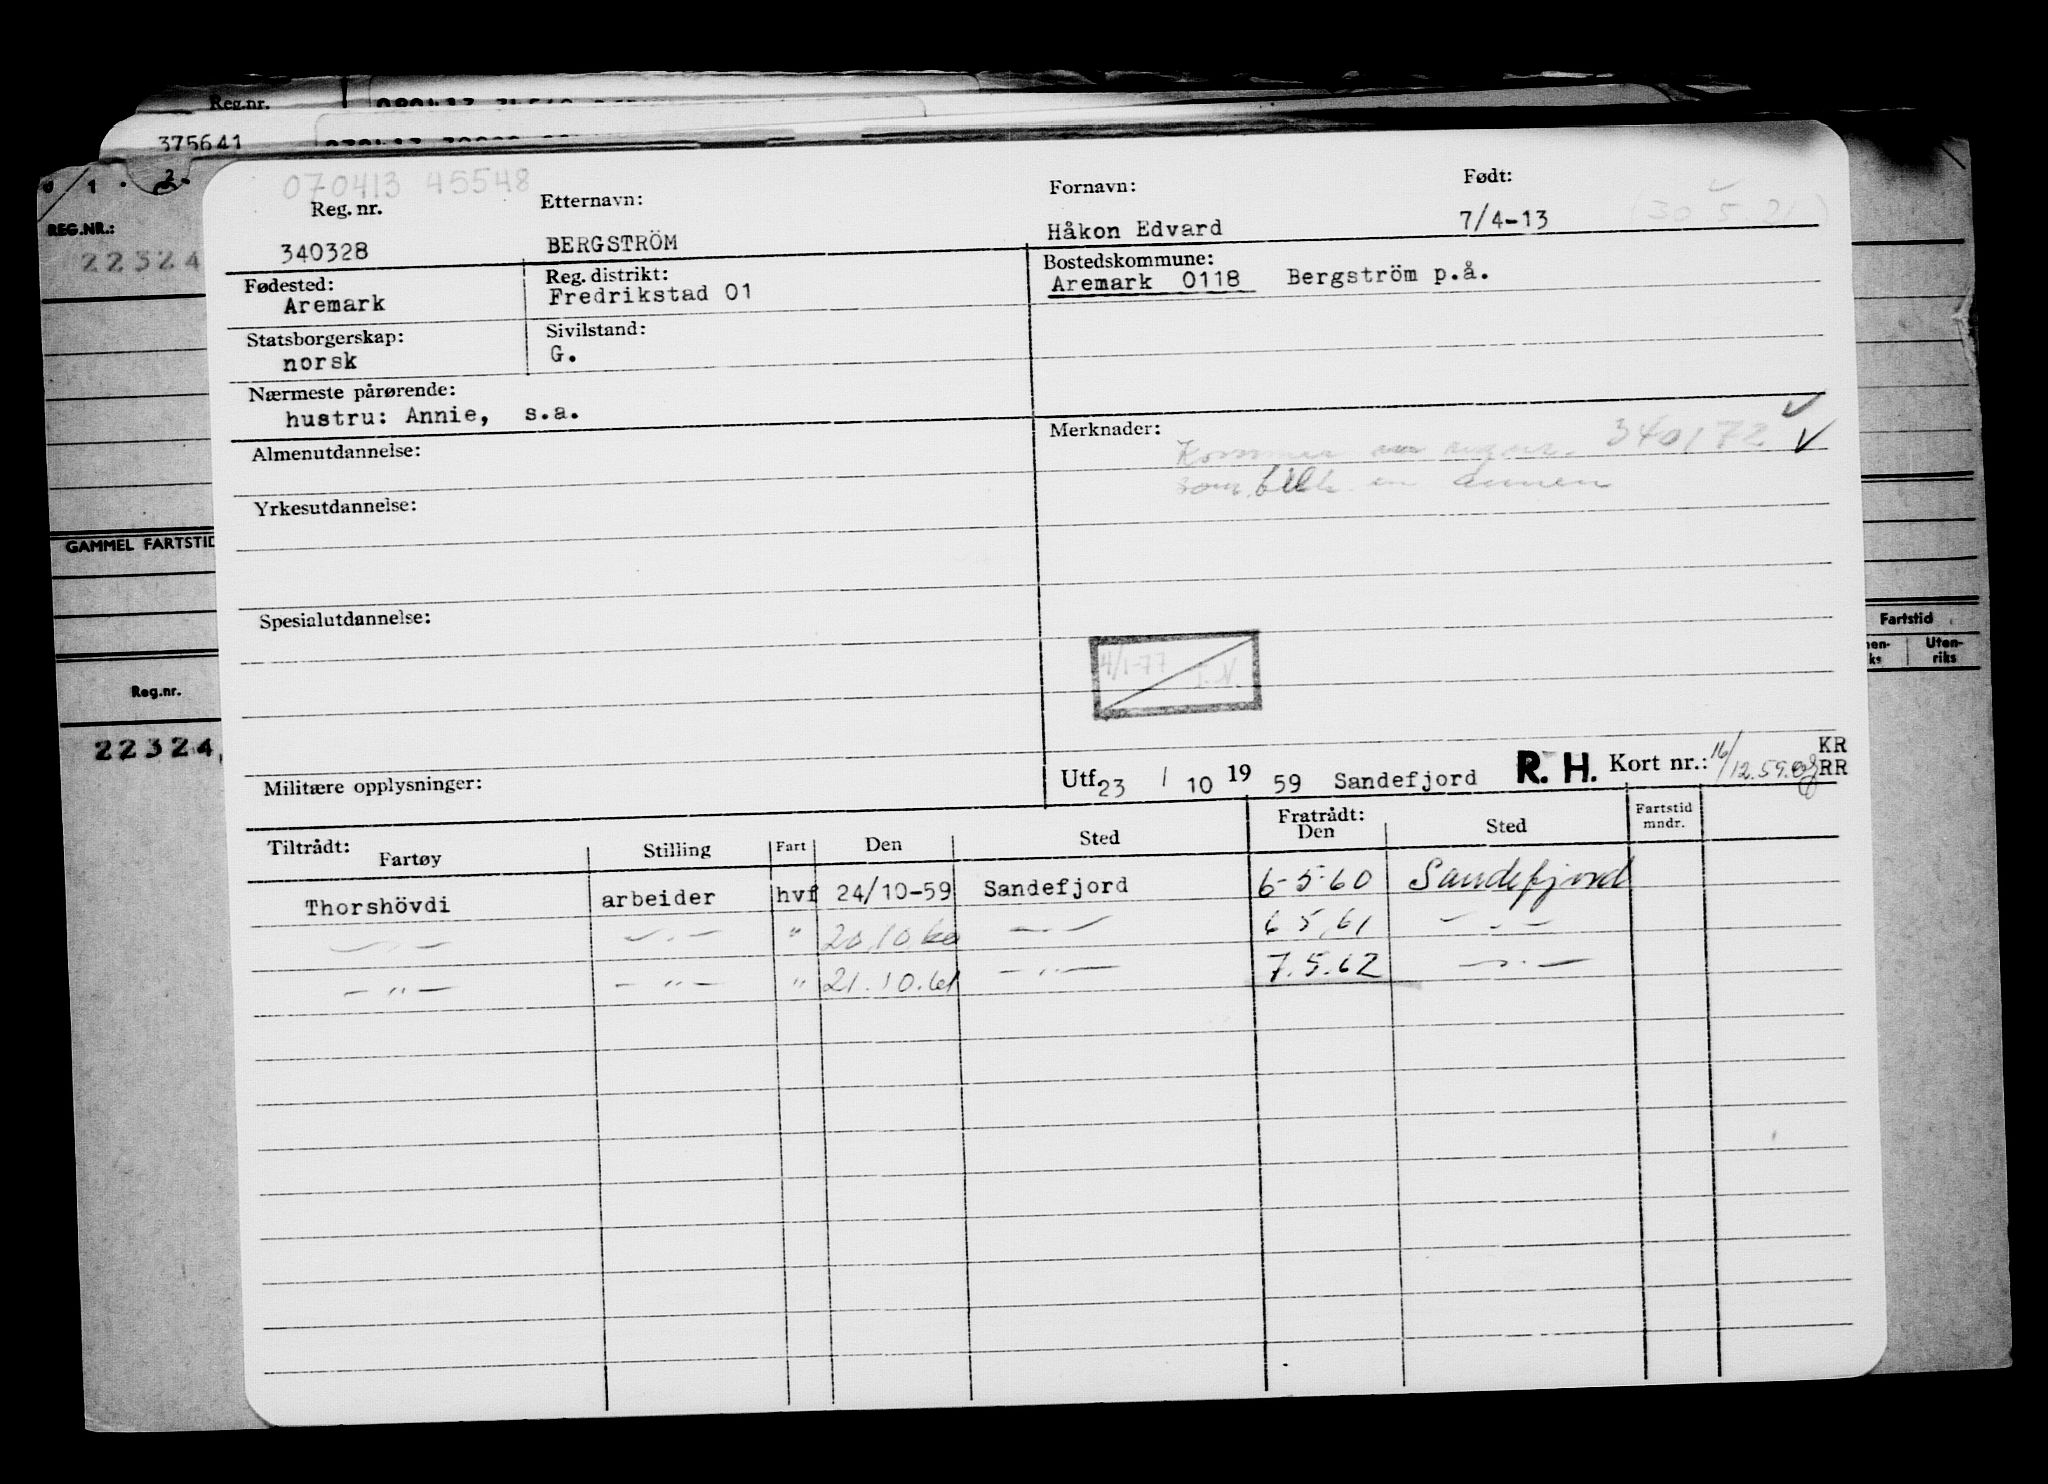 Reg.nr.
375641
1 2
REG.NR.:
22324
GAMMEL FARTSTID
Reg.nr.
22324
Fartstid
Uten-
riks
070413 45548
Reg. nr. Etternavn: Fornavn: Født:
340328 BERGSTRÖM Håkon Edvard 7/4-13 (30 5. 21)
Fødested: Reg. distrikt: Bostedskommune:
Aremark Fredrikstad 01 Aremark 0118 Bergström p.å.
Statsborgerskap: Sivilstand:
norsk G.
Nærmeste pårørende:
hustru: Annie, s.a.
Almenutdannelse: Merknader:
Kommer 340172
som en annen
Yrkesutdannelse:
Spesialutdannelse:
4/1-77 I.N.
Militære opplysninger: Utf 23 / 10 19 59 Sandefjord R. H. Kort nr.: 16/12.59 KR
RR
Tiltrådt: Fratrådt: Fartstid
Fartøy Stilling Fart Den Sted Den Sted mndr.
Thorshövdi arbeider hvf 24/10-59 Sandefjord 6-5-60 Sandefjord
—"— —"— " 20.10.60 —"— 6 5.61 —"—
—"— —"— " 21.10.61 —"— 7.5.62 —"—